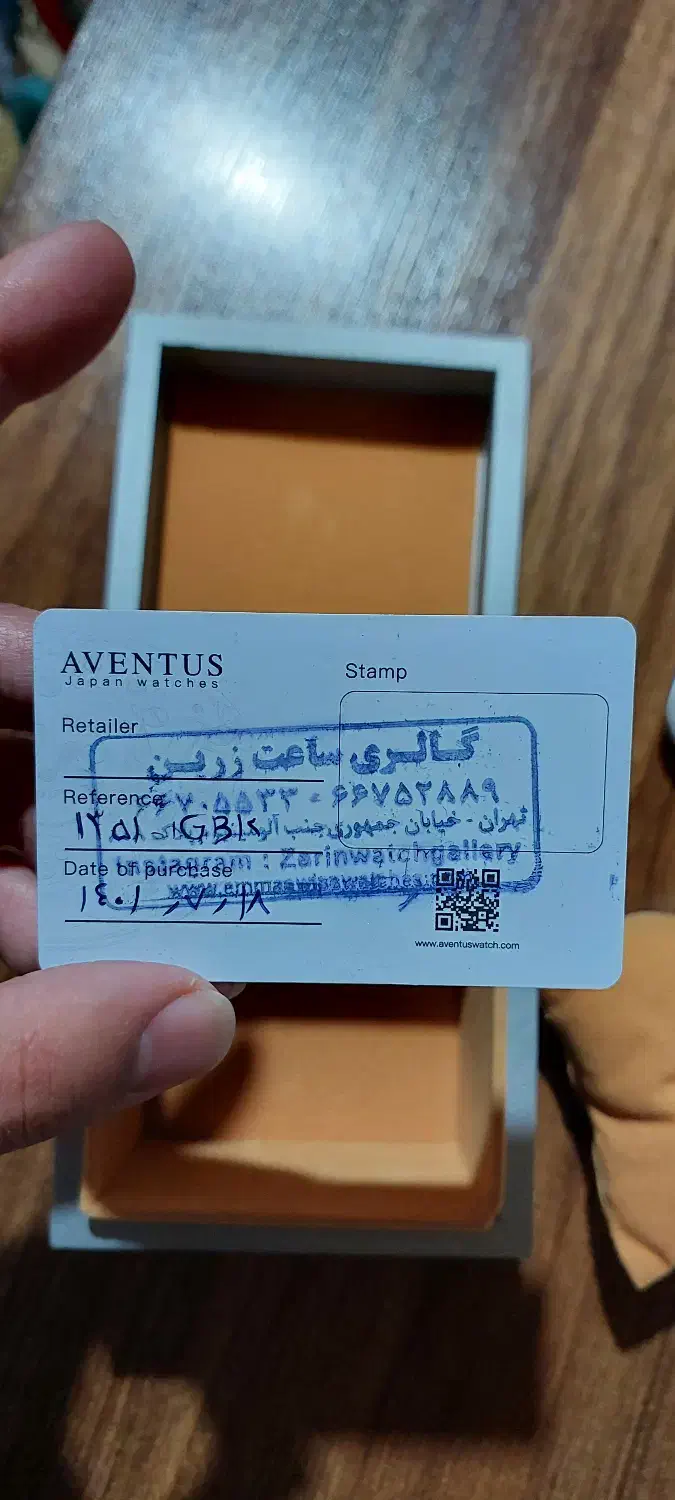 AVENTUS
Japan watches
Stamp
Retailer
گالری ساعت زرین
Reference
۶۶۷۰۵۵۳۳ - ۶۶۷۵۲۸۸۹
۱۲۵۱ GBK
تهران - خیابان جمهوری جنب
Instagram : Zarinwatchgallery
Date of purchase
۱۴۰۱ / ۷ / ۱۸
www.aventuswatch.com